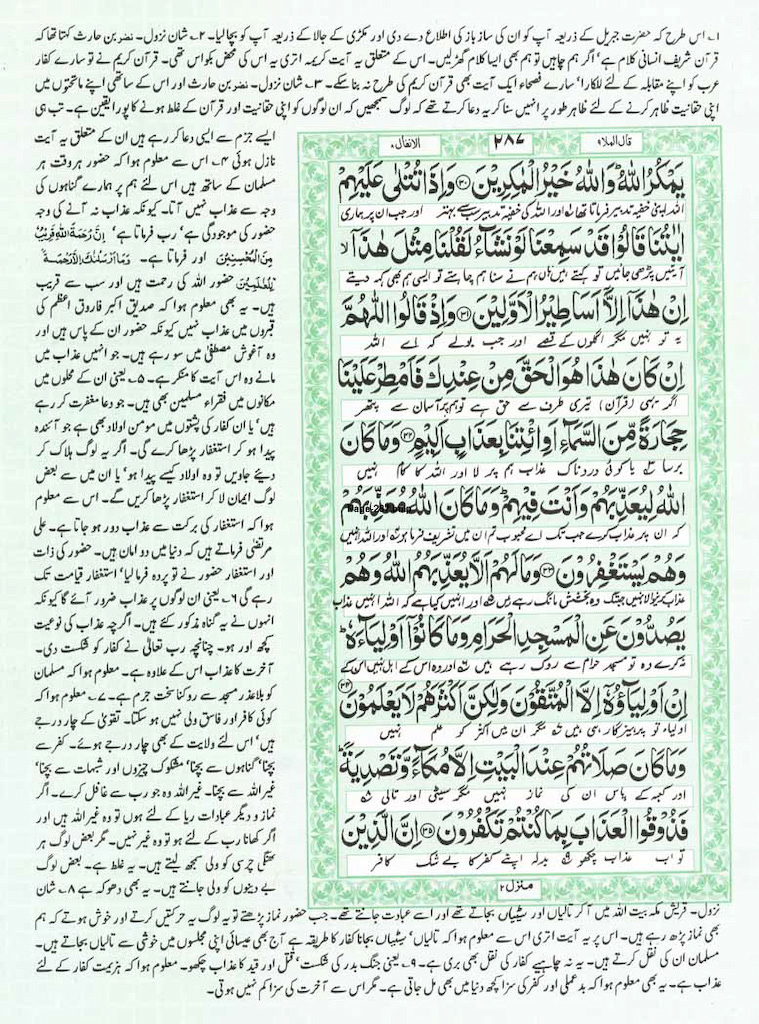 ۱۔ اس طرح کہ حضرت جبریل کے ذریعہ آپ کو ان کی ساز باز کی اطلاع دے دی اور مکڑی کے جالا کے ذریعہ آپ کو بچا لیا۔ ۲۔ شان نزول۔ نضر بن حارث کہتا تھا کہ
قرآن شریف انسانی کلام ہے' اگر ہم چاہیں تو ہم بھی ایسا کلام گھڑ لیں۔ اس کے متعلق یہ آیت کریمہ اتری یہ اس کی محض بکواس تھی۔ قرآن کریم نے تو سارے کفار
عرب کو اپنے مقابلہ کے لئے للکارا' سارے فصحاء ایک آیت بھی قرآن کریم کی طرح نہ بنا سکے۔ ۳۔ شان نزول۔ نضر بن حارث اور اس کے ساتھی اپنے ماتحتوں میں
اپنی حقانیت ظاہر کرنے کے لئے ظاہر طور پر انہیں سنا کر یہ دعا کرتے تھے کہ لوگ سمجھیں کہ ان لوگوں کو اپنی حقانیت اور قرآن کے غلط ہونے کا پورا یقین ہے۔ تب ہی
قال الملا ۹
۲۸۷
الانفال ۸
يَمْكُرُ اللّٰهُ ؕ وَاللّٰهُ خَيْرُ الْمٰكِرِيْنَ ۳۰ وَاِذَا تُتْلٰى عَلَيْهِمْ
اللہ اپنی خفیہ تدبیر فرماتا تھا اور اللہ کی خفیہ تدبیر سب سے بہتر اور جب ان پر ہماری
اٰيٰتُنَا قَالُوْا قَدْ سَمِعْنَا لَوْ نَشَآءُ لَقُلْنَا مِثْلَ هٰذَاۤ ۙ
آیتیں پڑھی جائیں تو کہتے ہیں ہاں ہم نے سنا ہم چاہتے تو ایسی ہم بھی کہہ دیتے
اِنْ هٰذَاۤ اِلَّاۤ اَسَاطِيْرُ الْاَوَّلِيْنَ ۳۱ وَاِذْ قَالُوا اللّٰهُمَّ
یہ تو نہیں مگر اگلوں کے قصے اور جب بولے کہ اے اللہ
اِنْ كَانَ هٰذَا هُوَ الْحَقَّ مِنْ عِنْدِكَ فَاَمْطِرْ عَلَيْنَا
اگر یہی (قرآن) تیری طرف سے حق ہے تو ہم پر آسمان سے پتھر
حِجَارَةً مِّنَ السَّمَآءِ اَوِ ائْتِنَا بِعَذَابٍ اَلِيْمٍ ۳۲ وَمَا كَانَ
برسا یا کوئی دردناک عذاب ہم پر لا اور اللہ کا کام نہیں
اللّٰهُ لِيُعَذِّبَهُمْ وَاَنْتَ فِيْهِمْ ؕ وَمَا كَانَ اللّٰهُ مُعَذِّبَهُمْ
کہ ان پر عذاب کرے جب تک اے محبوب تم ان میں تشریف فرما ہو اور اللہ انہیں
وَهُمْ يَسْتَغْفِرُوْنَ ۳۳ وَمَا لَهُمْ اَلَّا يُعَذِّبَهُمُ اللّٰهُ وَهُمْ
عذاب کرنے والا نہیں جب تک وہ بخشش مانگ رہے ہیں اور انہیں کیا ہے کہ اللہ انہیں عذاب
يَصُدُّوْنَ عَنِ الْمَسْجِدِ الْحَرَامِ وَمَا كَانُوْۤا اَوْلِيَآءَهٗ ؕ
نہ کرے وہ تو مسجد حرام سے روک رہے ہیں اور وہ اس کے اہل نہیں اس کے
اِنْ اَوْلِيَآؤُهٗۤ اِلَّا الْمُتَّقُوْنَ وَلٰكِنَّ اَكْثَرَهُمْ لَا يَعْلَمُوْنَ ۳۴
اولیاء تو پرہیزگار ہی ہیں مگر ان میں اکثر کو علم نہیں
وَمَا كَانَ صَلَاتُهُمْ عِنْدَ الْبَيْتِ اِلَّا مُكَآءً وَّتَصْدِيَةً ؕ
اور کعبہ کے پاس ان کی نماز نہیں مگر سیٹی اور تالی
فَذُوْقُوا الْعَذَابَ بِمَا كُنْتُمْ تَكْفُرُوْنَ ۳۵ اِنَّ الَّذِيْنَ
تو اب عذاب چکھو بدلہ اپنے کفر کا بے شک کافر
منزل ۲
ایسے جزم سے ایسی دعا کر رہے ہیں ان کے متعلق یہ آیت
نازل ہوئی ۴۔ اس سے معلوم ہوا کہ حضور ہر وقت ہر
مسلمان کے ساتھ ہیں اس لئے ہم پر ہمارے گناہوں کی
وجہ سے عذاب نہیں آتا۔ کیونکہ عذاب نہ آنے کی وجہ
حضور کی موجودگی ہے' رب فرماتا ہے' اِنَّ رَحْمَةَ اللّٰهِ قَرِيْبٌ
مِّنَ الْمُحْسِنِيْنَ اور فرماتا ہے۔ وَمَاۤ اَرْسَلْنٰكَ اِلَّا رَحْمَةً
لِّلْعٰلَمِيْنَ حضور اللہ کی رحمت ہیں اور سب سے قریب
ہیں۔ یہ بھی معلوم ہوا کہ صدیق اکبر فاروق اعظم کی
قبروں میں عذاب نہیں کیونکہ حضور ان کے پاس ہیں اور
وہ آغوش مصطفیٰ میں سو رہے ہیں۔ جو انہیں عذاب میں
مانے وہ اس آیت کا منکر ہے۔ ۵۔ یعنی ان کے محلوں میں
مکانوں میں فقراء مسلمین بھی ہیں۔ جو دعا مغفرت کر رہے
ہیں' یا ان کفار کی پشتوں میں مومن اولاد بھی ہے جو آئندہ
پیدا ہو کر استغفار پڑھا کرے گی۔ اگر یہ لوگ ہلاک کر
دیئے جاویں تو وہ اولاد کیسے پیدا ہو' یا ان میں سے بعض
لوگ ایمان لا کر استغفار پڑھا کریں گے۔ اس سے معلوم
ہوا کہ استغفار کی برکت سے عذاب دور ہو جاتا ہے۔ علی
مرتضیٰ فرماتے ہیں کہ دنیا میں دو امان ہیں۔ حضور کی ذات
اور استغفار حضور نے تو پردہ فرما لیا' استغفار قیامت تک
رہے گی ۶۔ یعنی ان لوگوں پر عذاب ضرور آئے گا کیونکہ
انہوں نے یہ گناہ مذکور کئے ہیں۔ اگرچہ عذاب کی نوعیت
کچھ اور ہو۔ چنانچہ رب تعالیٰ نے کفار کو شکست دی۔
آخرت کا عذاب اس کے علاوہ ہے۔ معلوم ہوا کہ مسلمان
کو بلا عذر مسجد سے روکنا سخت جرم ہے۔ ۷۔ معلوم ہوا کہ
کوئی کافر اور فاسق ولی نہیں ہو سکتا۔ تقویٰ کے چار درجے
ہیں' اس لئے ولایت کے بھی چار درجے ہوئے۔ کفر سے
بچنا' گناہوں سے بچنا' مشکوک چیزوں اور شبہات سے بچنا'
غیر اللہ سے بچنا۔ غیر اللہ وہ جو رب سے غافل کرے۔ اگر
نماز و دیگر عبادات ریا کے لئے ہوں تو وہ غیر اللہ ہیں اور
اگر کھانا رب کے لئے ہو تو وہ غیر نہیں۔ مگر بعض لوگ ہر
بھنگی چرسی کو ولی سمجھ لیتے ہیں۔ یہ غلط ہے۔ بعض لوگ
بے دینوں کو ولی جانتے ہیں۔ یہ بھی دھوکہ ہے ۸۔ شان
نزول۔ قریش مکہ بیت اللہ میں آ کر تالیاں اور سیٹیاں بجاتے تھے اور اسے عبادت جانتے تھے۔ جب حضور نماز پڑھتے تو یہ لوگ یہ حرکتیں کرتے اور خوش ہوتے کہ ہم
بھی نماز پڑھ رہے ہیں۔ اس پر یہ آیت اتری اس سے معلوم ہوا کہ تالیاں' سیٹیاں بجانا کفار کا طریقہ ہے آج بھی عیسائی اپنی مجلسوں میں خوشی سے تالیاں بجاتے ہیں۔
مسلمان ان کی نقل کرتے ہیں۔ یہ نہ چاہیے کفار کی نقل بھی بری ہے۔ ۹۔ یعنی جنگ بدر کی شکست' قتل اور قید کا عذاب چکھو۔ معلوم ہوا کہ ہزیمت کفار کے لئے
عذاب ہے۔ یہ بھی معلوم ہوا کہ بدعملی اور کفر کی سزا کچھ دنیا میں بھی مل جاتی ہے۔ مگر اس سے آخرت کی سزا کم نہیں ہوتی۔